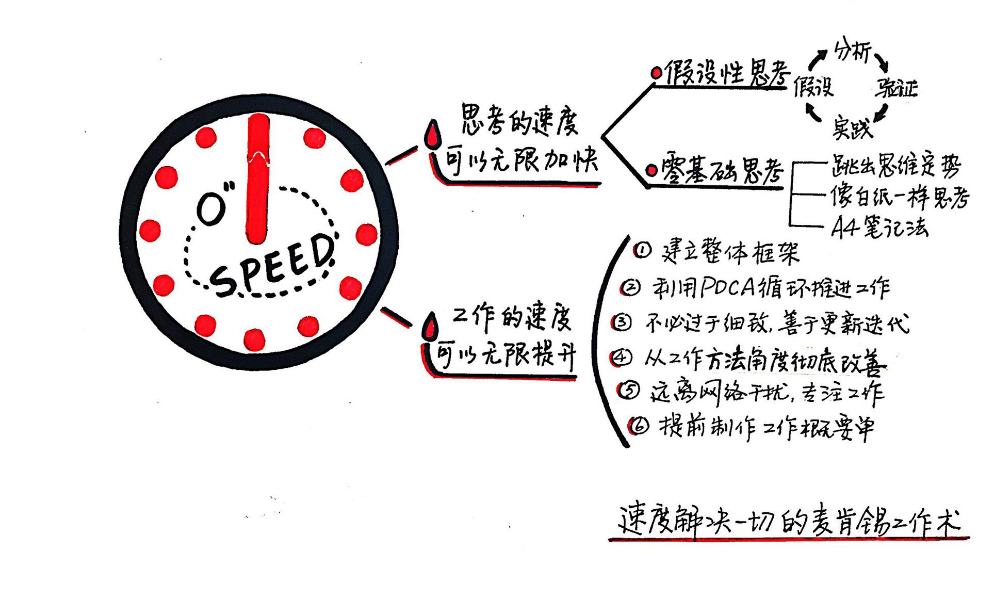 0"
SPEED
思考的速度
可以无限加快
假设性思考
分析
验证
实践
假设
零基础思考
跳出思维定势
像白纸一样思考
A4笔记法
工作的速度
可以无限提升
① 建立整体框架
② 利用PDCA循环推进工作
③ 不必过于细致,善于更新迭代
④ 从工作方法角度彻底改善
⑤ 远离网络干扰,专注工作
⑥ 提前制作工作概要单
速度解决一切的麦肯锡工作术